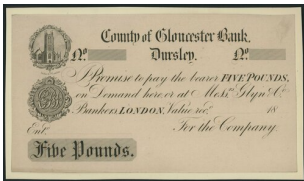 County of Gloucester Bank.
No. Dursley. No.
I Promise to pay the bearer FIVE POUNDS,
on Demand here, or at Messrs. Glyn & Co.
Bankers LONDON, Value recd. 18
Entd. For the Company
Five Pounds.